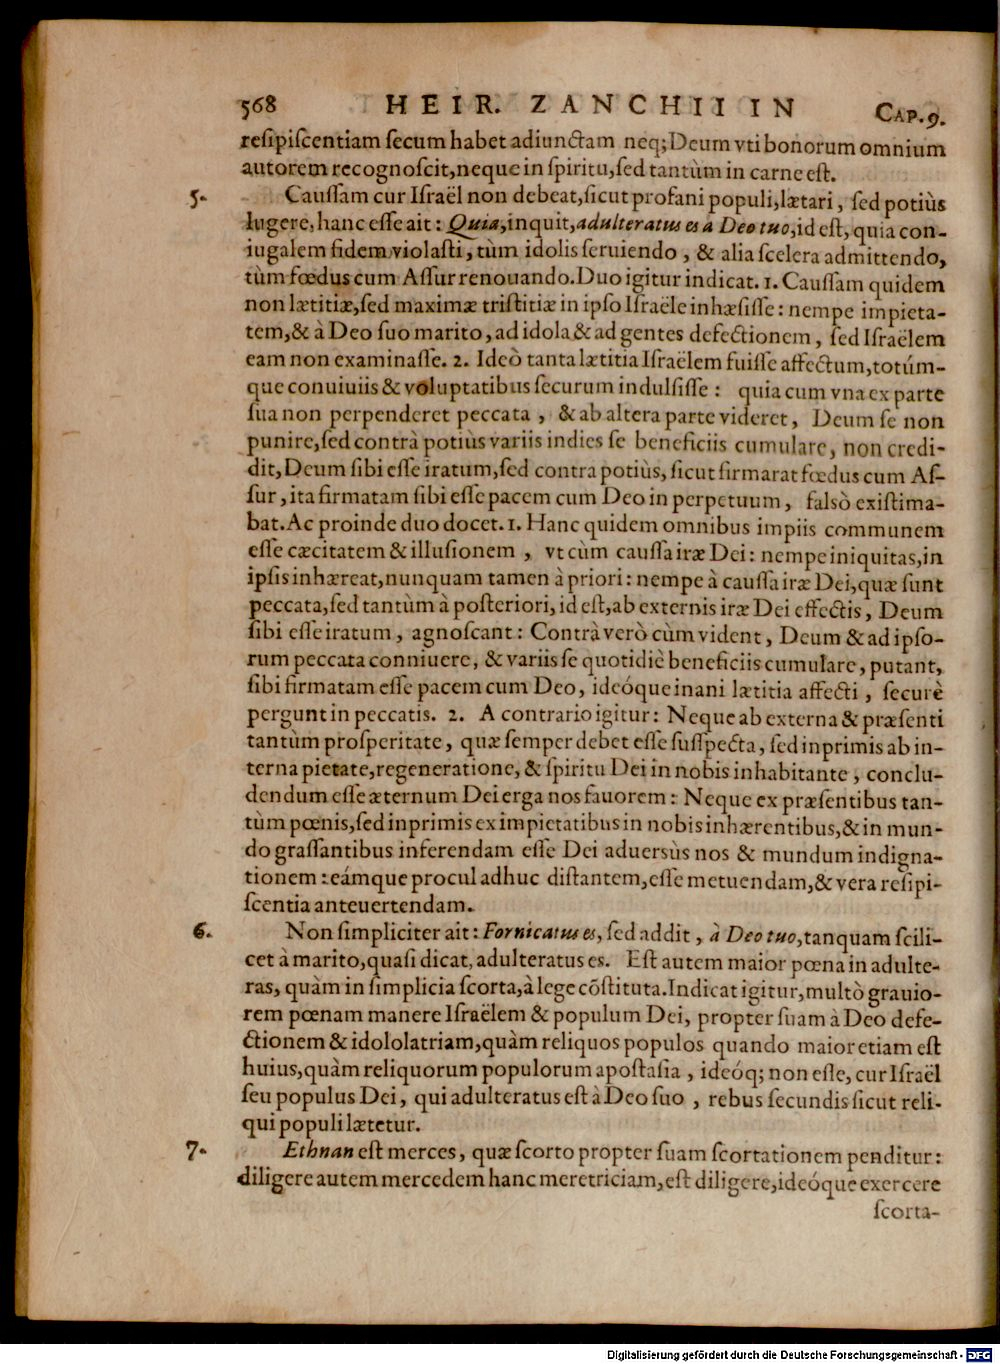 568 HEIR. ZANCHII IN CAP. 9.
resipiscentiam secum habet adiunctam neq; Deum vti bonorum omnium
autorem recognoscit, neque in spiritu, sed tantùm in carne est.
5. Caussam cur Israël non debeat, sicut profani populi, lætari, sed potiùs
lugere, hanc esse ait: Quia, inquit, adulteratus es a Deo tuo, id est, quia con-
iugalem fidem violasti, tùm idolis seruiendo, & alia scelera admittendo,
tùm fœdus cum Assur renouando. Duo igitur indicat. 1. Caussam quidem
non lætitiæ, sed maximæ tristitiæ in ipso Israële inhæsisse: nempe impieta-
tem, & à Deo suo marito, ad idola & ad gentes defectionem, sed Israëlem
eam non examinasse. 2. Ideò tanta lætitia Israëlem fuisse affectum, totúm-
que conuiuiis & voluptatibus securum indulsisse: quia cum vna ex parte
sua non perpenderet peccata, & ab altera parte videret, Deum se non
punire, sed contrà potiùs variis indies se beneficiis cumulare, non credi-
dit, Deum sibi esse iratum, sed contra potiùs, sicut firmarat fœdus cum As-
sur, ita firmatam sibi esse pacem cum Deo in perpetuum, falsò existima-
bat. Ac proinde duo docet. 1. Hanc quidem omnibus impiis communem
esse cæcitatem & illusionem, vt cùm caussa iræ Dei: nempe iniquitas, in
ipsis inhæreat, nunquam tamen à priori: nempe à caussa iræ Dei, quæ sunt
peccata, sed tantùm à posteriori, id est, ab externis iræ Dei effectis, Deum
sibi esse iratum, agnoscant: Contrà verò cùm vident, Deum & ad ipso-
rum peccata conniuere, & variis se quotidiè beneficiis cumulare, putant,
sibi firmatam esse pacem cum Deo, ideóque inani lætitia affecti, securè
pergunt in peccatis. 2. A contrario igitur: Neque ab externa & præsenti
tantùm prosperitate, quæ semper debet esse suspecta, sed inprimis ab in-
terna pietate, regeneratione, & spiritu Dei in nobis inhabitante, conclu-
dendum esse æternum Dei erga nos fauorem: Neque ex præsentibus tan-
tùm pœnis, sed inprimis ex impietatibus in nobis inhærentibus, & in mun-
do grassantibus inferendam esse Dei aduersùs nos & mundum indigna-
tionem: eámque procul adhuc distantem, esse metuendam, & vera resipi-
scentia anteuertendam.
6. Non simpliciter ait: Fornicatus es, sed addit, à Deo tuo, tanquam scili-
cet à marito, quasi dicat, adulteratus es. Est autem maior pœna in adulte-
ras, quàm in simplicia scorta, à lege cõstituta. Indicat igitur, multò grauio-
rem pœnam manere Israëlem & populum Dei, propter suam à Deo defe-
ctionem & idololatriam, quàm reliquos populos quando maior etiam est
huius, quàm reliquorum populorum apostasia, ideóq; non esse, cur Israël
seu populus Dei, qui adulteratus est à Deo suo, rebus secundis sicut reli-
qui populi lætetur.
7. Ethnan est merces, quæ scorto propter suam scortationem penditur:
diligere autem mercedem hanc meretriciam, est diligere, ideóque exercere
scorta-
Digitalisierung gefördert durch die Deutsche Forschungsgemeinschaft - DFG